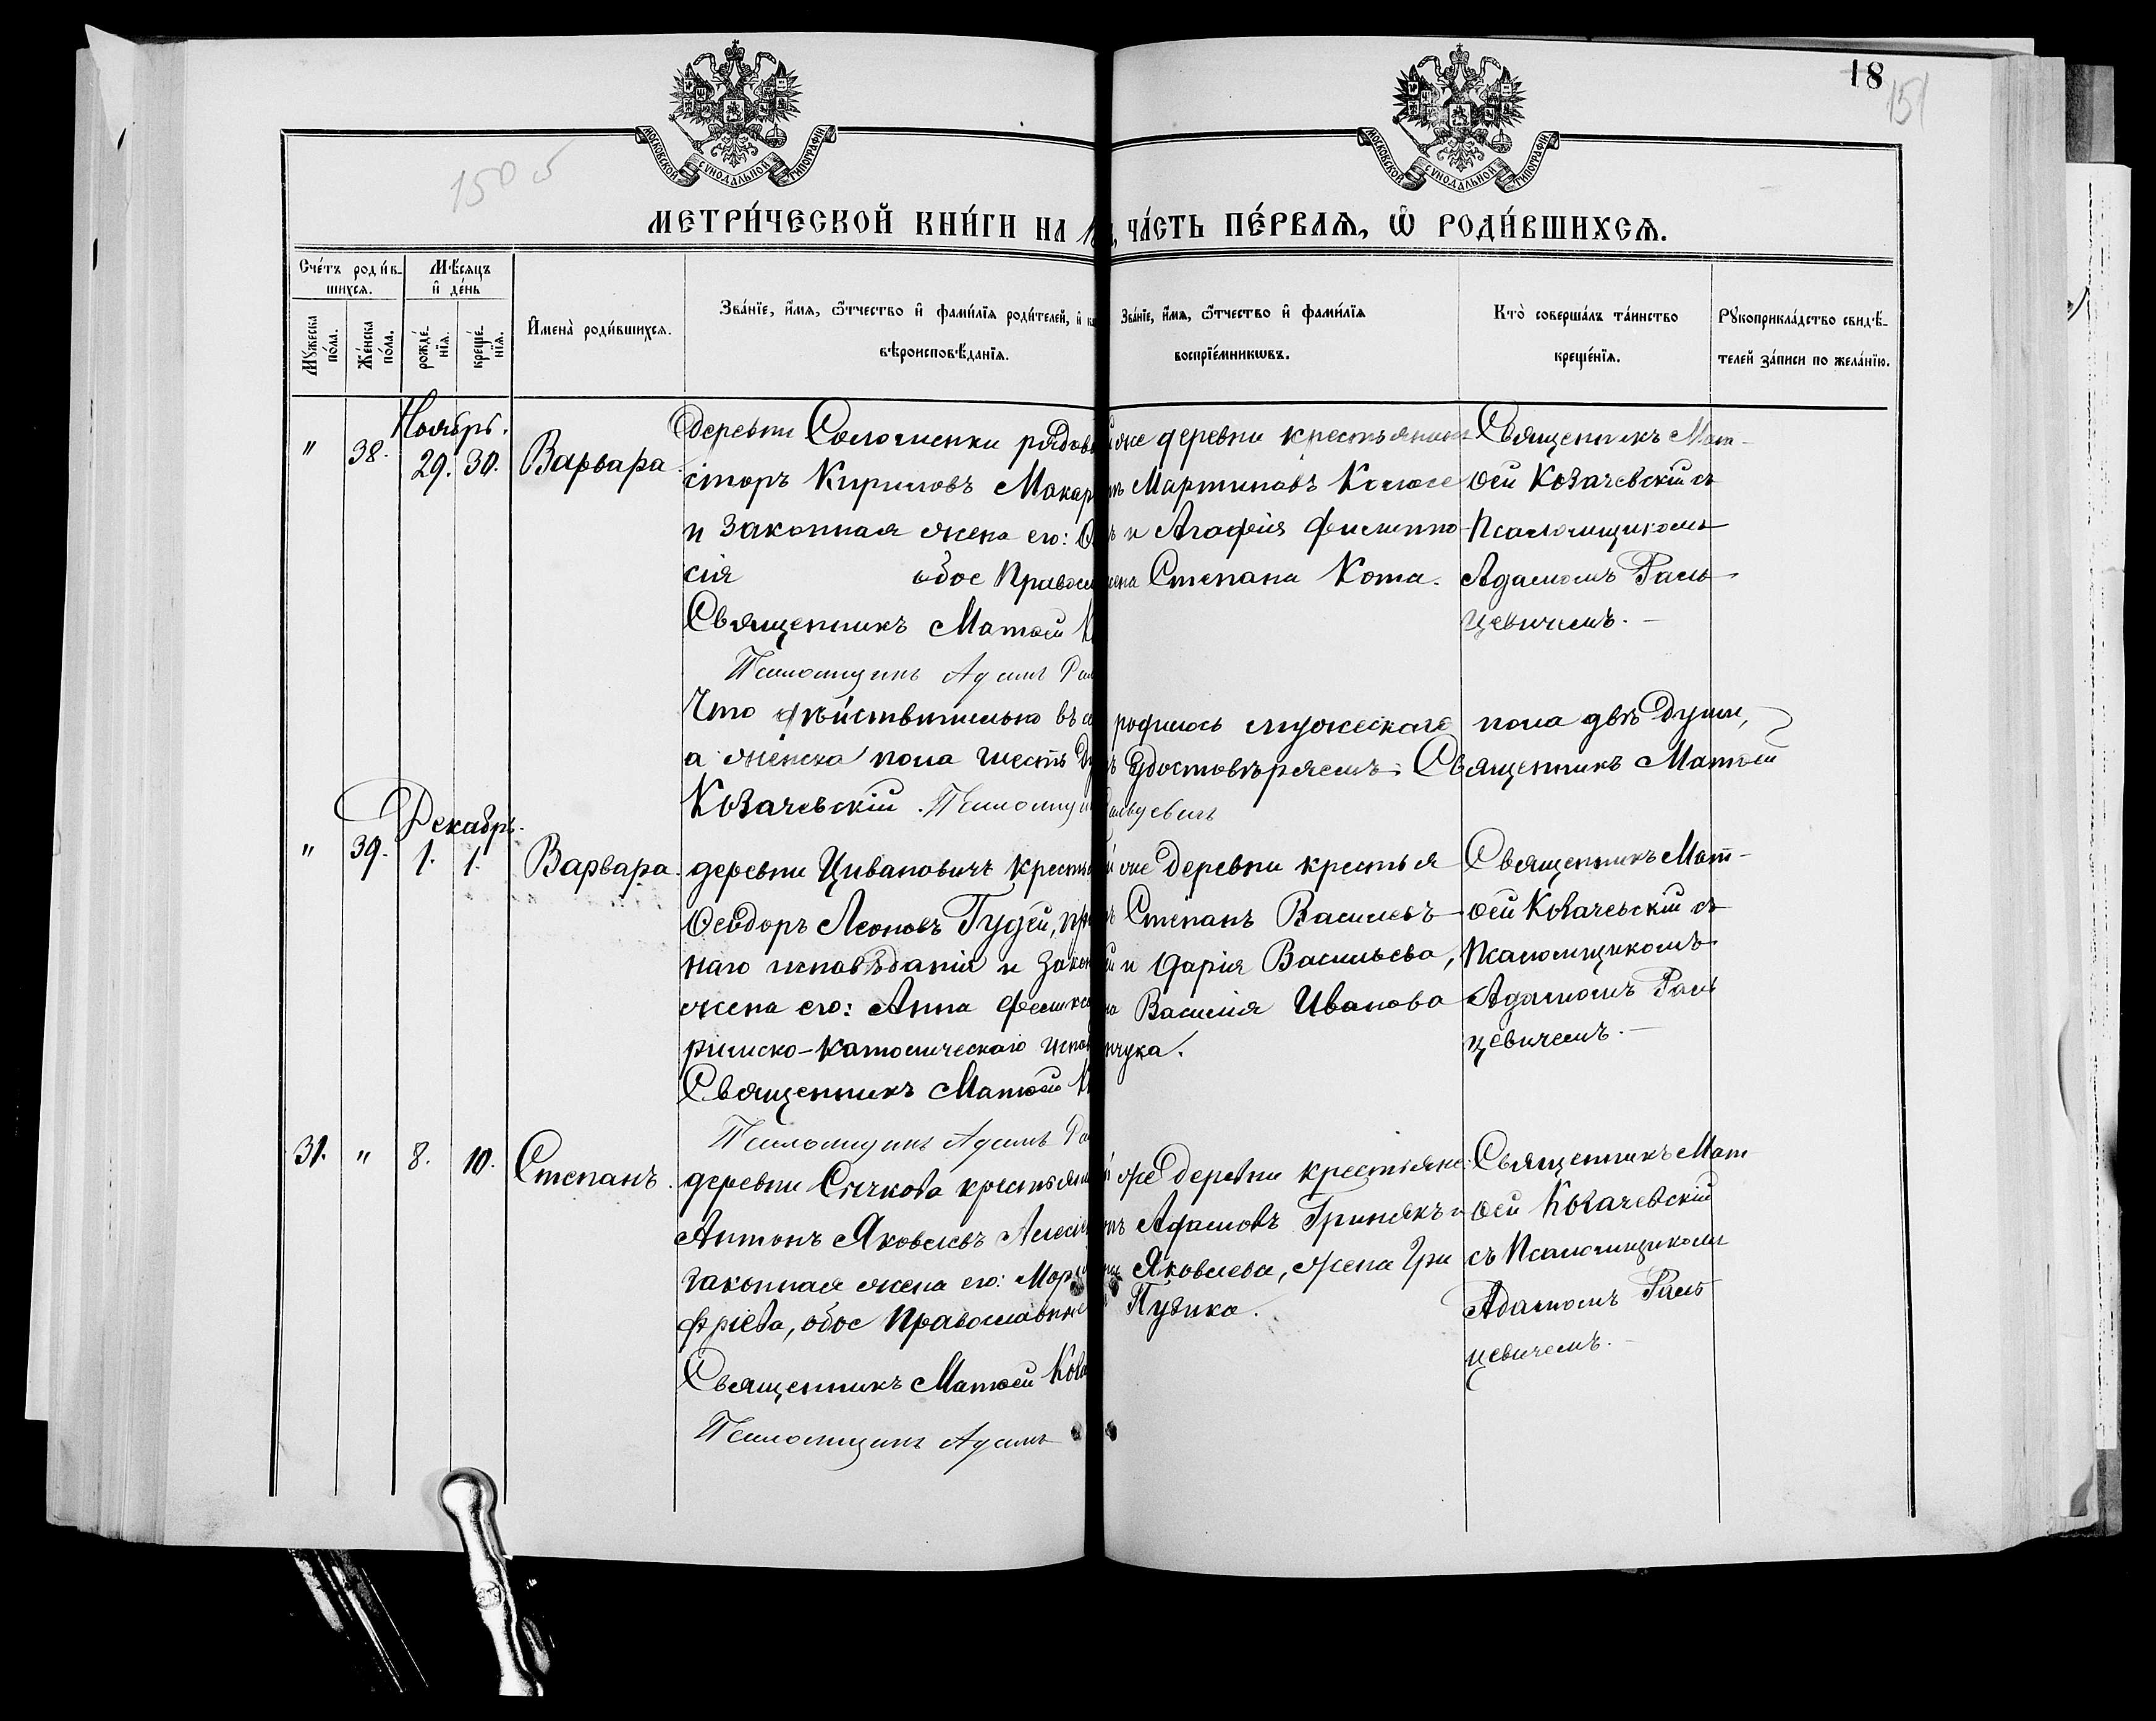 18
151
150 об
МОСКОВСКОЙ СѴНОДАЛЬНОЙ ТИПОГРАФІИ
МОСКОВСКОЙ СѴНОДАЛЬНОЙ ТИПОГРАФІИ
МЕТРИ́ЧЕСКОЙ КНИ́ГИ НА
ЧА́СТЬ ПЕ́РВАЯ, Ѡ РОДИ́ВШИХСЯ.
Сче́тъ роди́в-
шихся.
Мѣ́сяцъ
и де́нь
Му́жеска
по́ла.
Же́нска
по́ла.
рожде́-
нїя.
креще́-
нїя.
И҆мена̀ роди́вшихся.
Зва́нїе, и҆́мя, ѻ҆́тчество и҆ фами́лїя роди́телей, и҆
вѣроисповѣ́данїя.
Зва́нїе, и҆́мя, ѻ҆́тчество и҆ фами́лїя
воспрїе́мникѡвъ.
Кто̀ соверша́лъ та́инство
креще́нїя.
Рукоприкла́дство свидѣ́-
телей за́писи по жела́нїю.
Ноябрь.
" 38. 29. 30. Варвара
деревни Соломенки рядов
сторъ Кириловъ Макар
и законная жена его:
сія обое Правосл
Священникъ Матѳей
Псаломщикъ Адамъ Рал
же деревни крестьянинъ
Мартиновъ
и Агафія Филиппо
Степана Кота.
Священникъ Мат-
ѳей Козачевскій съ
Псаломщикомъ
Адамомъ Раль
цевичемъ. —
Что дѣйствительно въ
родилось мужескаго пола двѣ души,
а женска пола шесть
удостовѣряемъ: Священникъ Матѳей
Козачевскій. Псаломщи
альцевичъ
Декабрь.
" 39. 1. 1. Варвара.
деревни Цивановичъ крестья
Ѳеодоръ Леоновъ Гудей, пр
наго исповѣданія и закон
жена его: Анна Феликсо
римско-католическаго испов
Священникъ Матѳей
Псаломщикъ Адамъ Ра
же деревни крестья
Степанъ Васильевъ
и Дарія Васильева,
на Василія Иванова
чука.
Священникъ Мат-
ѳей Козачевскій съ
Псаломщикомъ
Адамомъ Раль
цевичемъ. —
31. " 8. 10. Степанъ.
деревни Сычкова крестьяни
Антонъ Яковлевъ
законная жена его:
обое Православные
Священникъ Матѳей Коза
Псаломщикъ Адамъ
же деревни крестьяне:
Адамовъ Гринякъ и
Яковлева, жена Гри
Пузика.
Священникъ Мат
ѳей Козачевскій
съ Псаломщикомъ
Адамомъ Раль
цевичемъ. —